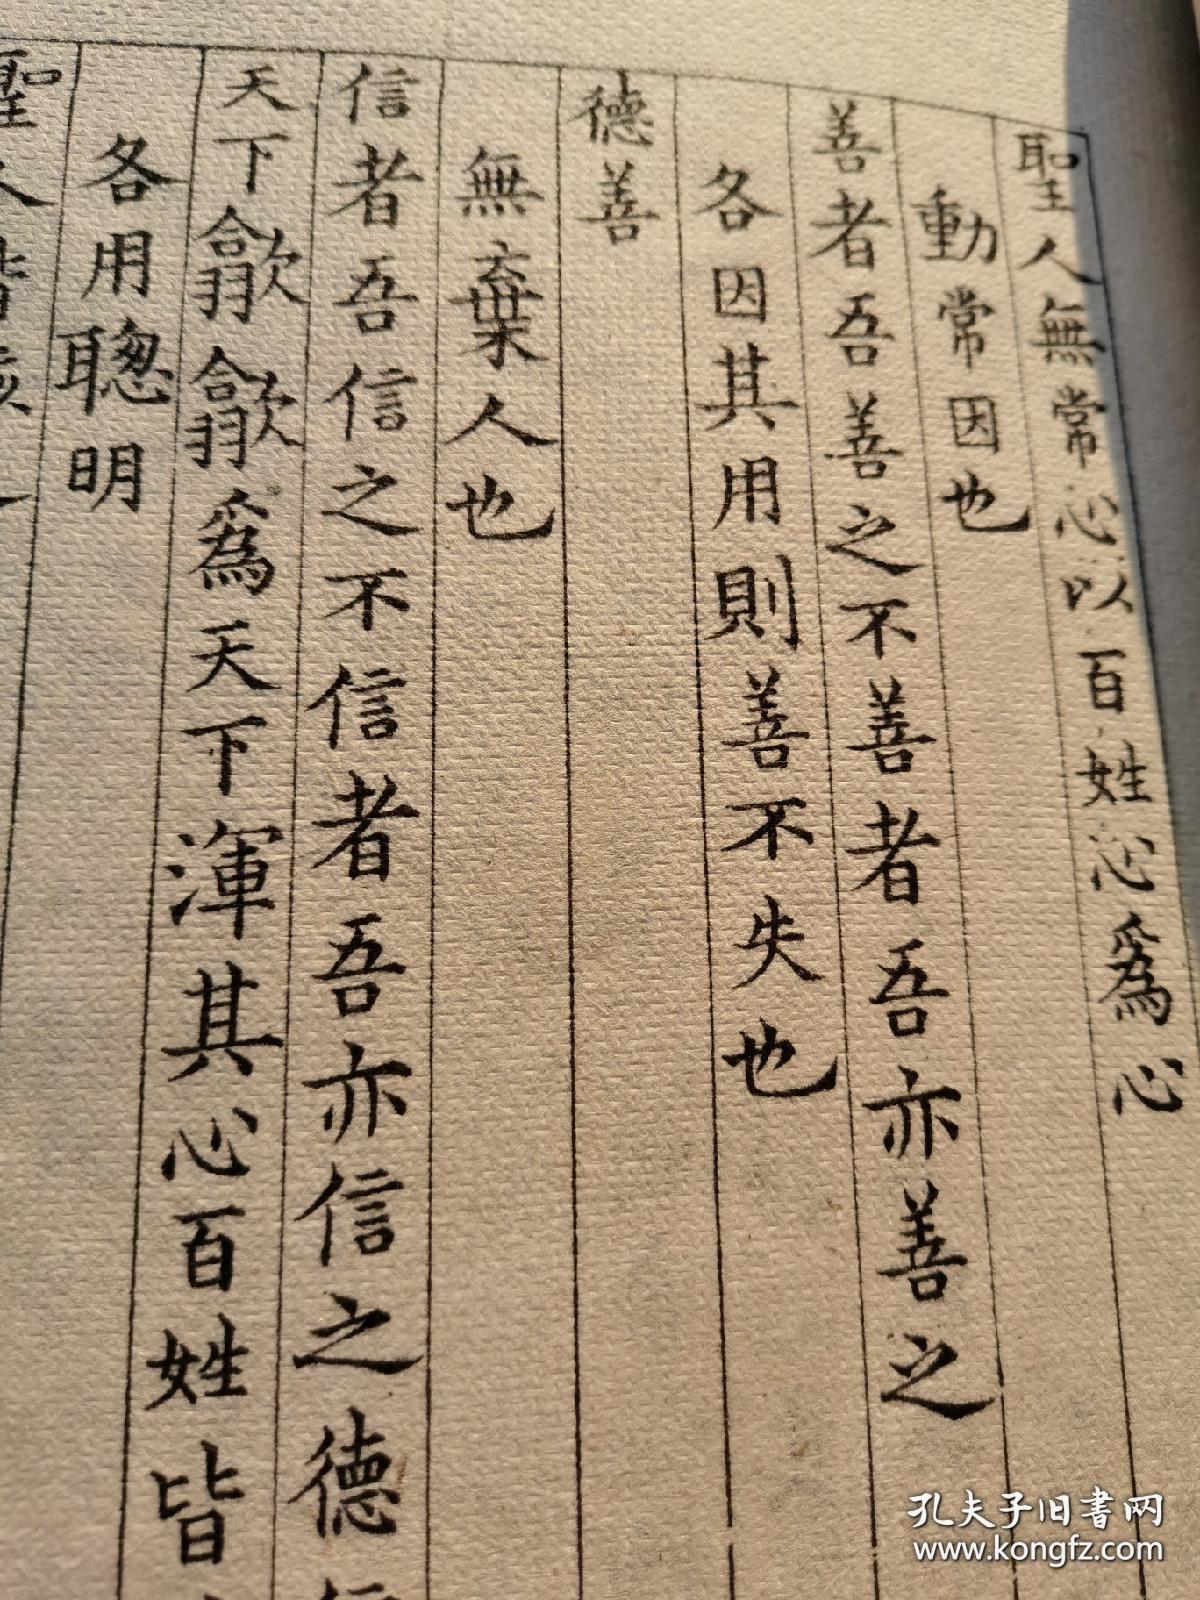 聖人無常心以百姓心爲心
動常因也
善者吾善之不善者吾亦善之
各因其用則善不失也
德善
無棄人也
信者吾信之不信者吾亦信之德
天下歙歙爲天下渾其心百姓皆
各用聰明
聖人皆孩之
孔夫子旧書网
www.kongfz.com